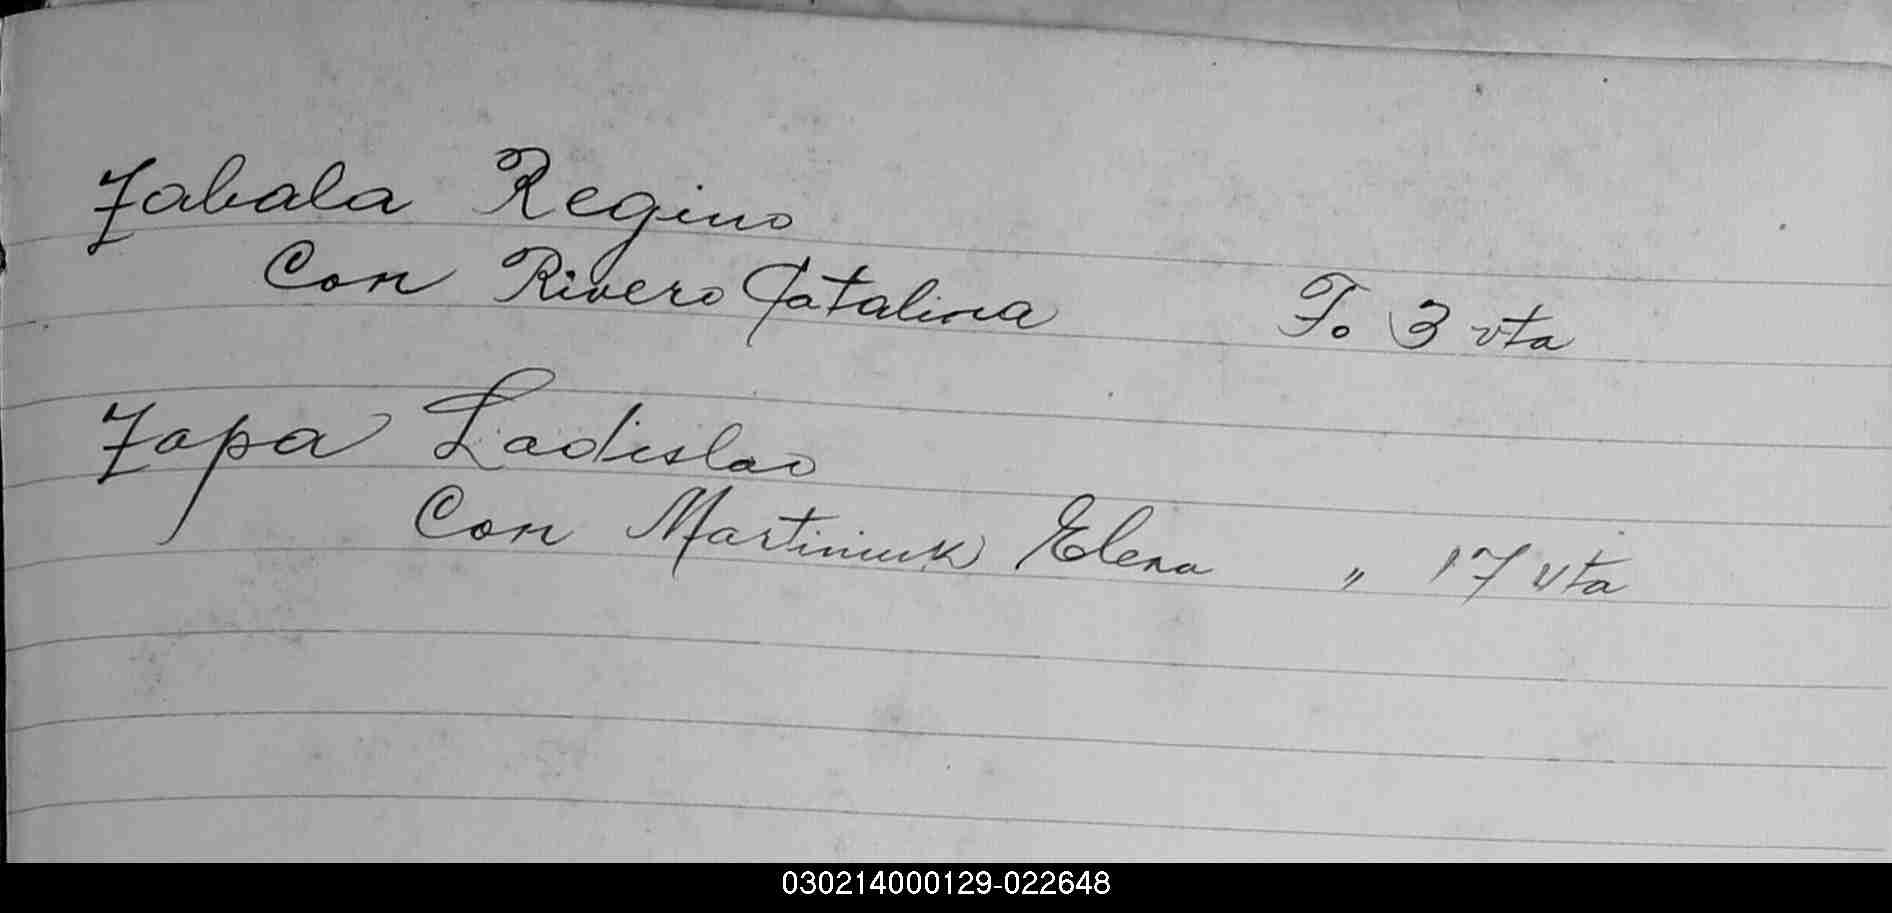 Zabala Regino
Con Rivero Catalina Fo 3 vta
Zapa Ladislao
Con Martiniuk Elena " 17 vta
030214000129-022648